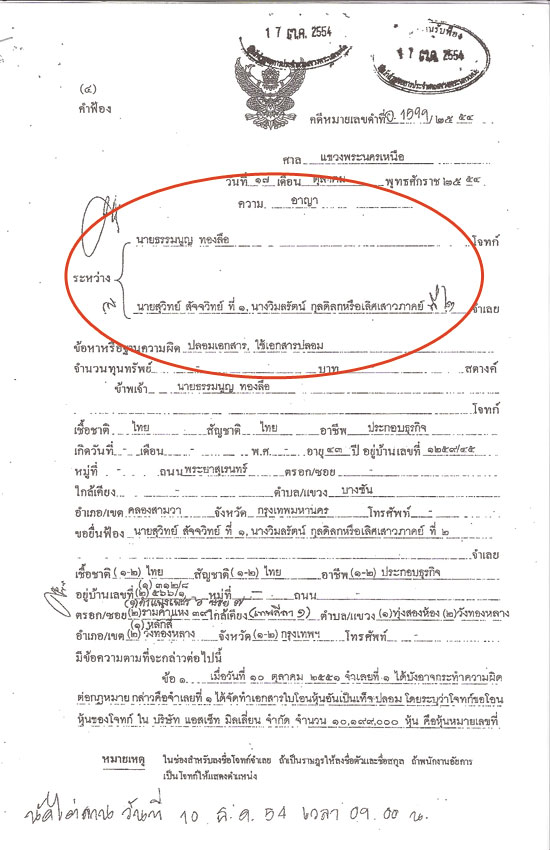 ๑ ๗ ต.ค. 2554
๑ ๗ ต.ค. 2554
(๔)
คำฟ้อง
คดีหมายเลขดำที่ อ. 1599/๒๕ ๕๔
ศาล แขวงพระนครเหนือ
วันที่ ๑๗ เดือน ตุลาคม พุทธศักราช ๒๕ ๕๔
ความ อาญา
นายธรรมนูญ ทองลือ โจทก์
ระหว่าง
นายสุวิทย์ สัจจวิทย์ ที่ ๑, นางวิมลรัตน์ กุลดิลกหรือเลิศเสาวภาคย์ ที่ ๒ จำเลย
ข้อหาหรือฐานความผิด ปลอมเอกสาร, ใช้เอกสารปลอม
จำนวนทุนทรัพย์ - บาท - สตางค์
ข้าพเจ้า นายธรรมนูญ ทองลือ
โจทก์
เชื้อชาติ ไทย สัญชาติ ไทย อาชีพ ประกอบธุรกิจ
เกิดวันที่ - เดือน - พ.ศ. - อายุ ๔๓ ปี อยู่บ้านเลขที่ ๑๒๕๙/๔๕
หมู่ที่ - ถนน พระยาสุเรนทร์ ตรอก/ซอย -
ใกล้เคียง - ตำบล/แขวง บางชัน
อำเภอ/เขต คลองสามวา จังหวัด กรุงเทพมหานคร โทรศัพท์ -
ขอยื่นฟ้อง นายสุวิทย์ สัจจวิทย์ ที่ ๑, นางวิมลรัตน์ กุลดิลกหรือเลิศเสาวภาคย์ ที่ ๒
จำเลย
เชื้อชาติ (๑-๒) ไทย สัญชาติ (๑-๒) ไทย อาชีพ (๑-๒) ประกอบธุรกิจ
(๑) ๓๑๒/๘
อยู่บ้านเลขที่ (๒) ๕๖๖/๑ หมู่ที่ - ถนน -
(๑) กำแพงเพชร ๖ ซอย ๗
ตรอก/ซอย (๒) รามคำแหง ๓๙ ใกล้เคียง (เทพลีลา ๑) ตำบล/แขวง (๑) ทุ่งสองห้อง (๒) วังทองหลาง
(๑) หลักสี่
อำเภอ/เขต (๒) วังทองหลาง จังหวัด (๑-๒) กรุงเทพฯ โทรศัพท์
มีข้อความตามที่จะกล่าวต่อไปนี้
ข้อ ๑. เมื่อวันที่ ๑๐ ตุลาคม ๒๕๕๑ จำเลยที่ ๑ ได้บังอาจกระทำความผิด
ต่อกฎหมาย กล่าวคือจำเลยที่ ๑ ได้จัดทำเอกสารใบโอนหุ้นอันเป็นเท็จ ปลอม โดยระบุว่าโจทก์ขอโอน
หุ้นของโจทก์ ใน บริษัท แอสเซ็ท มิลเลี่ยน จำกัด จำนวน ๑๐,๑๙๙,๐๐๐ หุ้น คือหุ้นหมายเลขที่
หมายเหตุ ในช่องสำหรับลงชื่อโจทก์จำเลย ถ้าเป็นราษฎรให้ลงชื่อตัวและชื่อสกุล ถ้าพนักงานอัยการ
เป็นโจทก์ให้แสดงตำแหน่ง
นัดไต่สวน วันที่ 10 ธ.ค. 54 เวลา 09.00 น.